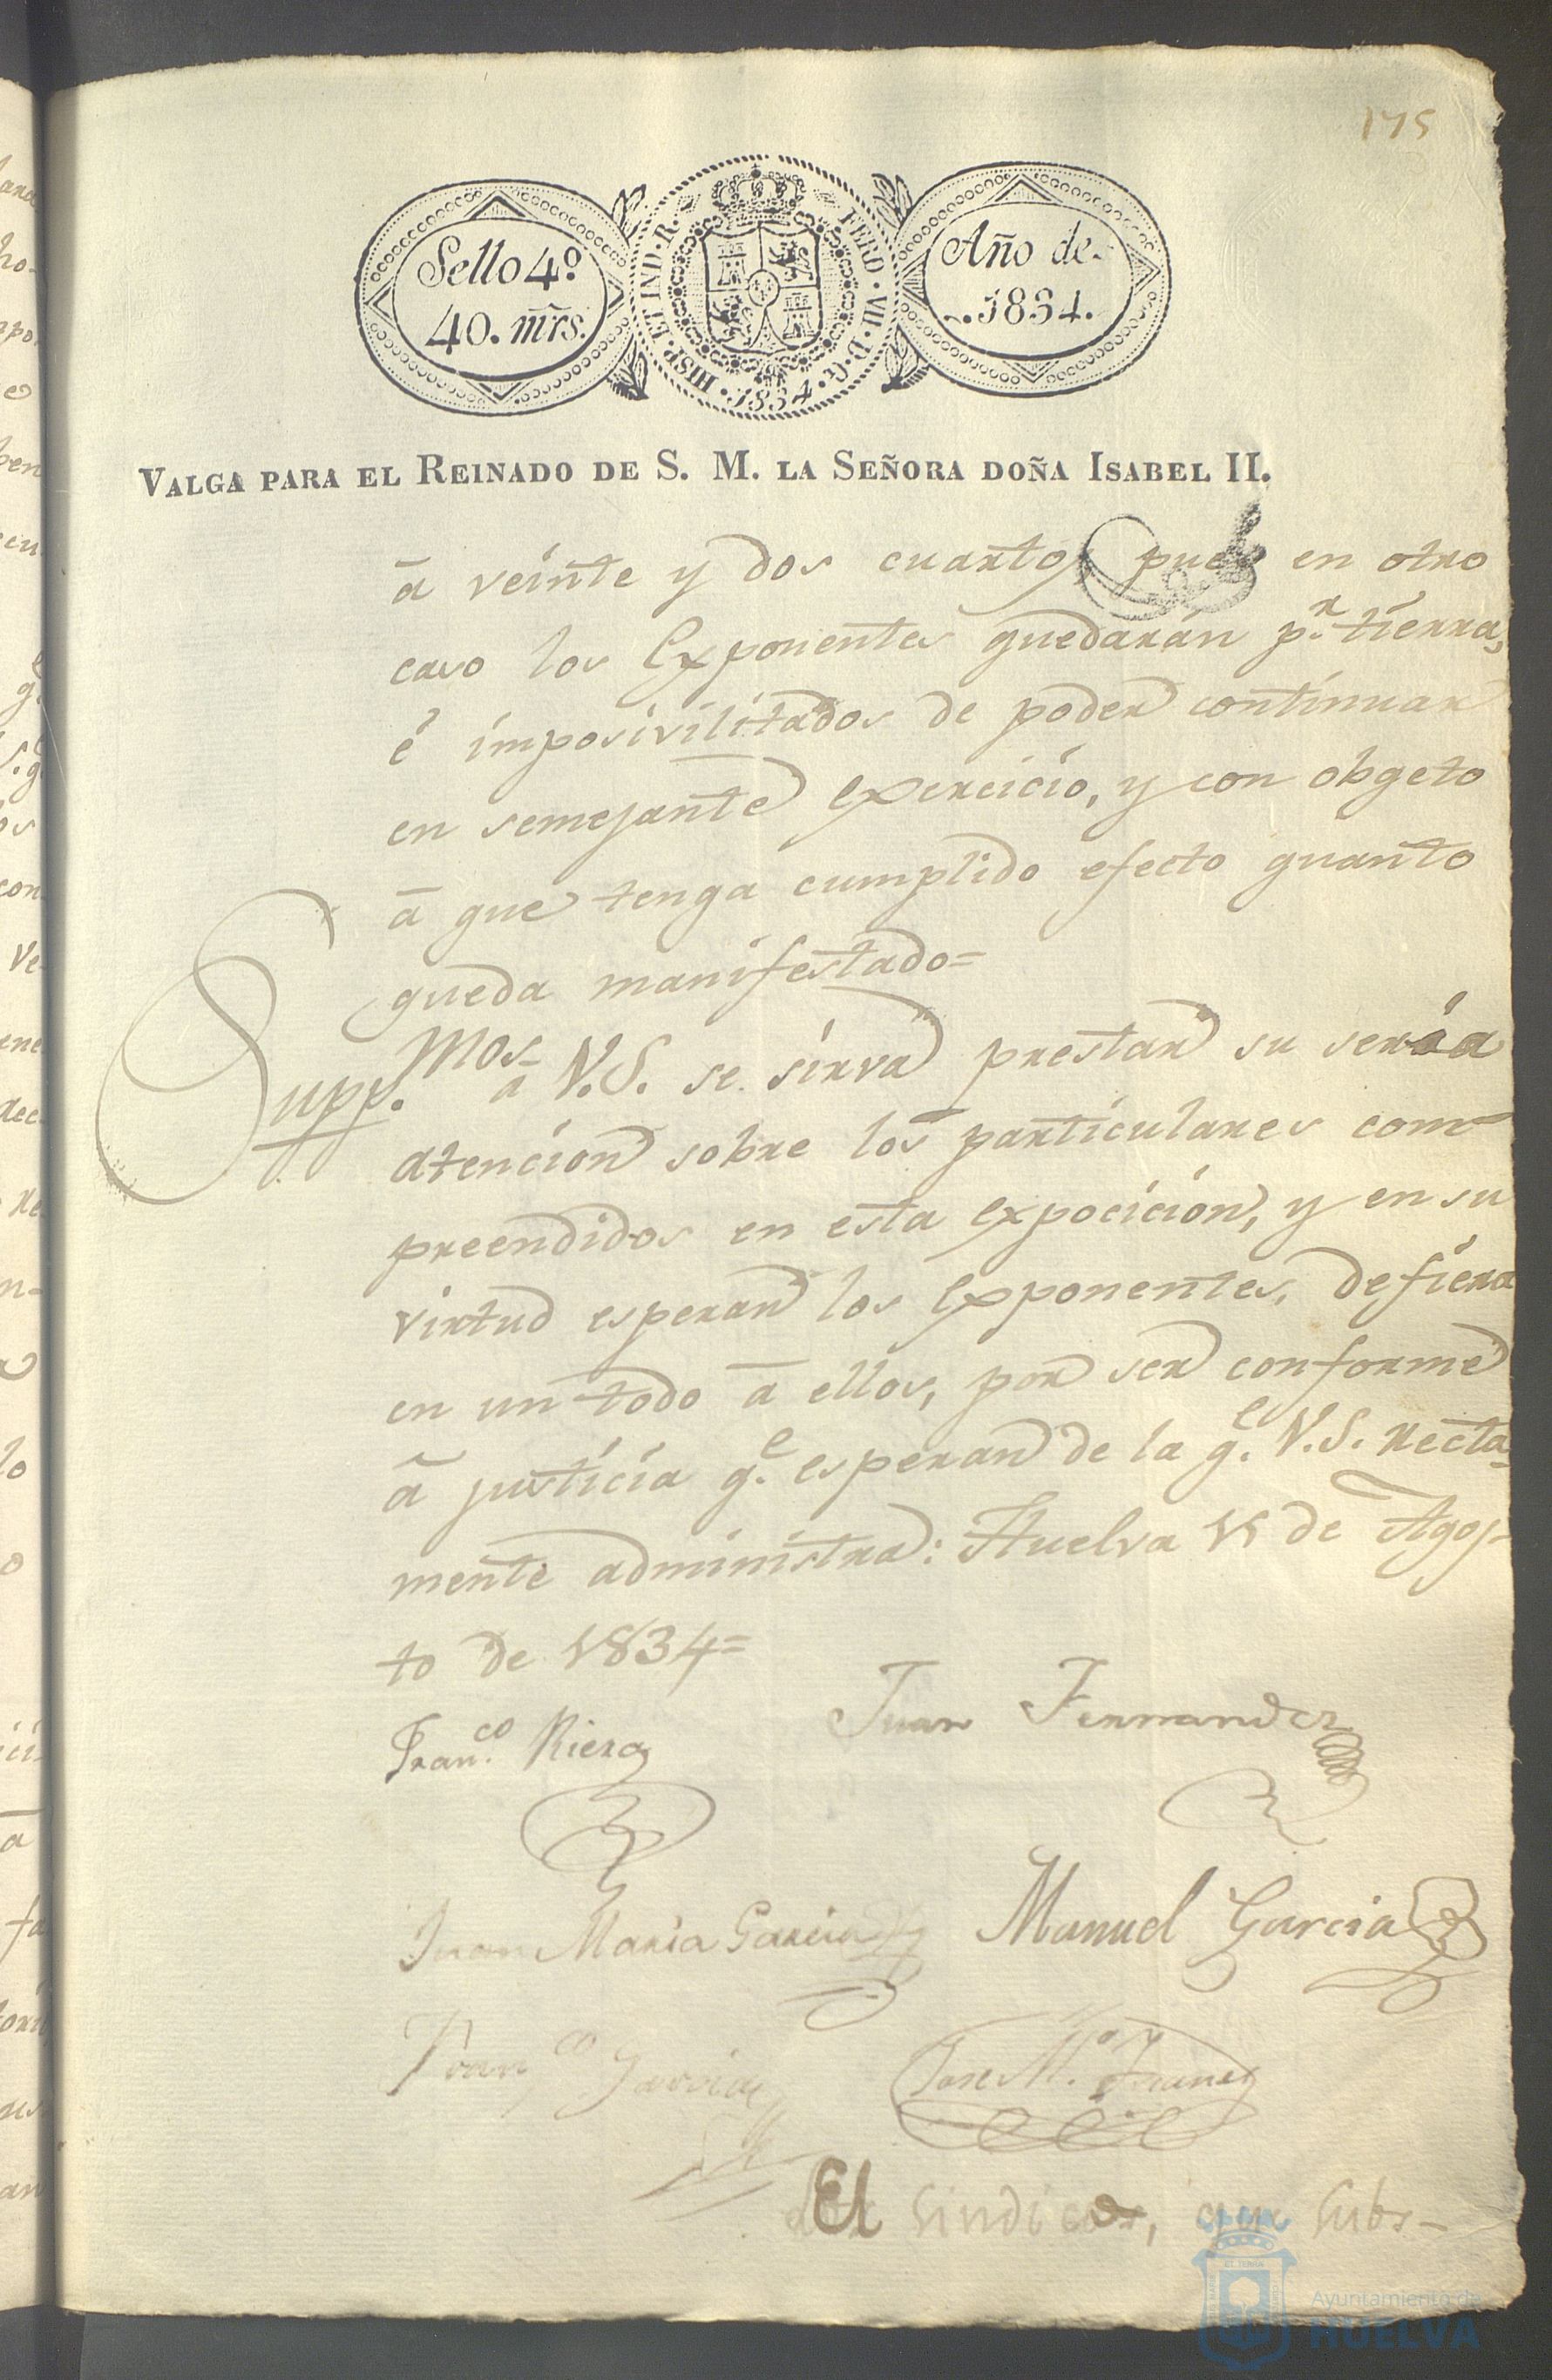 175
Sello 4º
40. mrs.
HISP. ET IND. R. FERD. VII. D. G. 1834.
Año de
1834.
VALGA PARA EL REINADO DE S. M. LA SEÑORA DOÑA ISABEL II.
á veinte y dos cuartos, pues en otro
caso los Exponentes quedarán p.r tierra,
é imposivilitados de poder continuar
en semejante exercicio, y con obgeto
á que tenga cumplido efecto quanto
queda manifestado=
Supp.mos á V.S. se sirva prestar su seria
atencion sobre los particulares com-
preendidos en esta expocicion, y en su
virtud esperan los exponentes, defiera
en un todo á ellos, por ser conforme
á justicia q.e esperan de la q.e V.S. recta-
mente administra: Huelva 11 de Agos-
to de 1834=
Fran.co Riera
Juan Fernandez
Juan Maria Garcia
Manuel Garcia
Fran.co Garcia
Jose M.a
El Sindico, que subs-
Ayuntamiento de
HUELVA